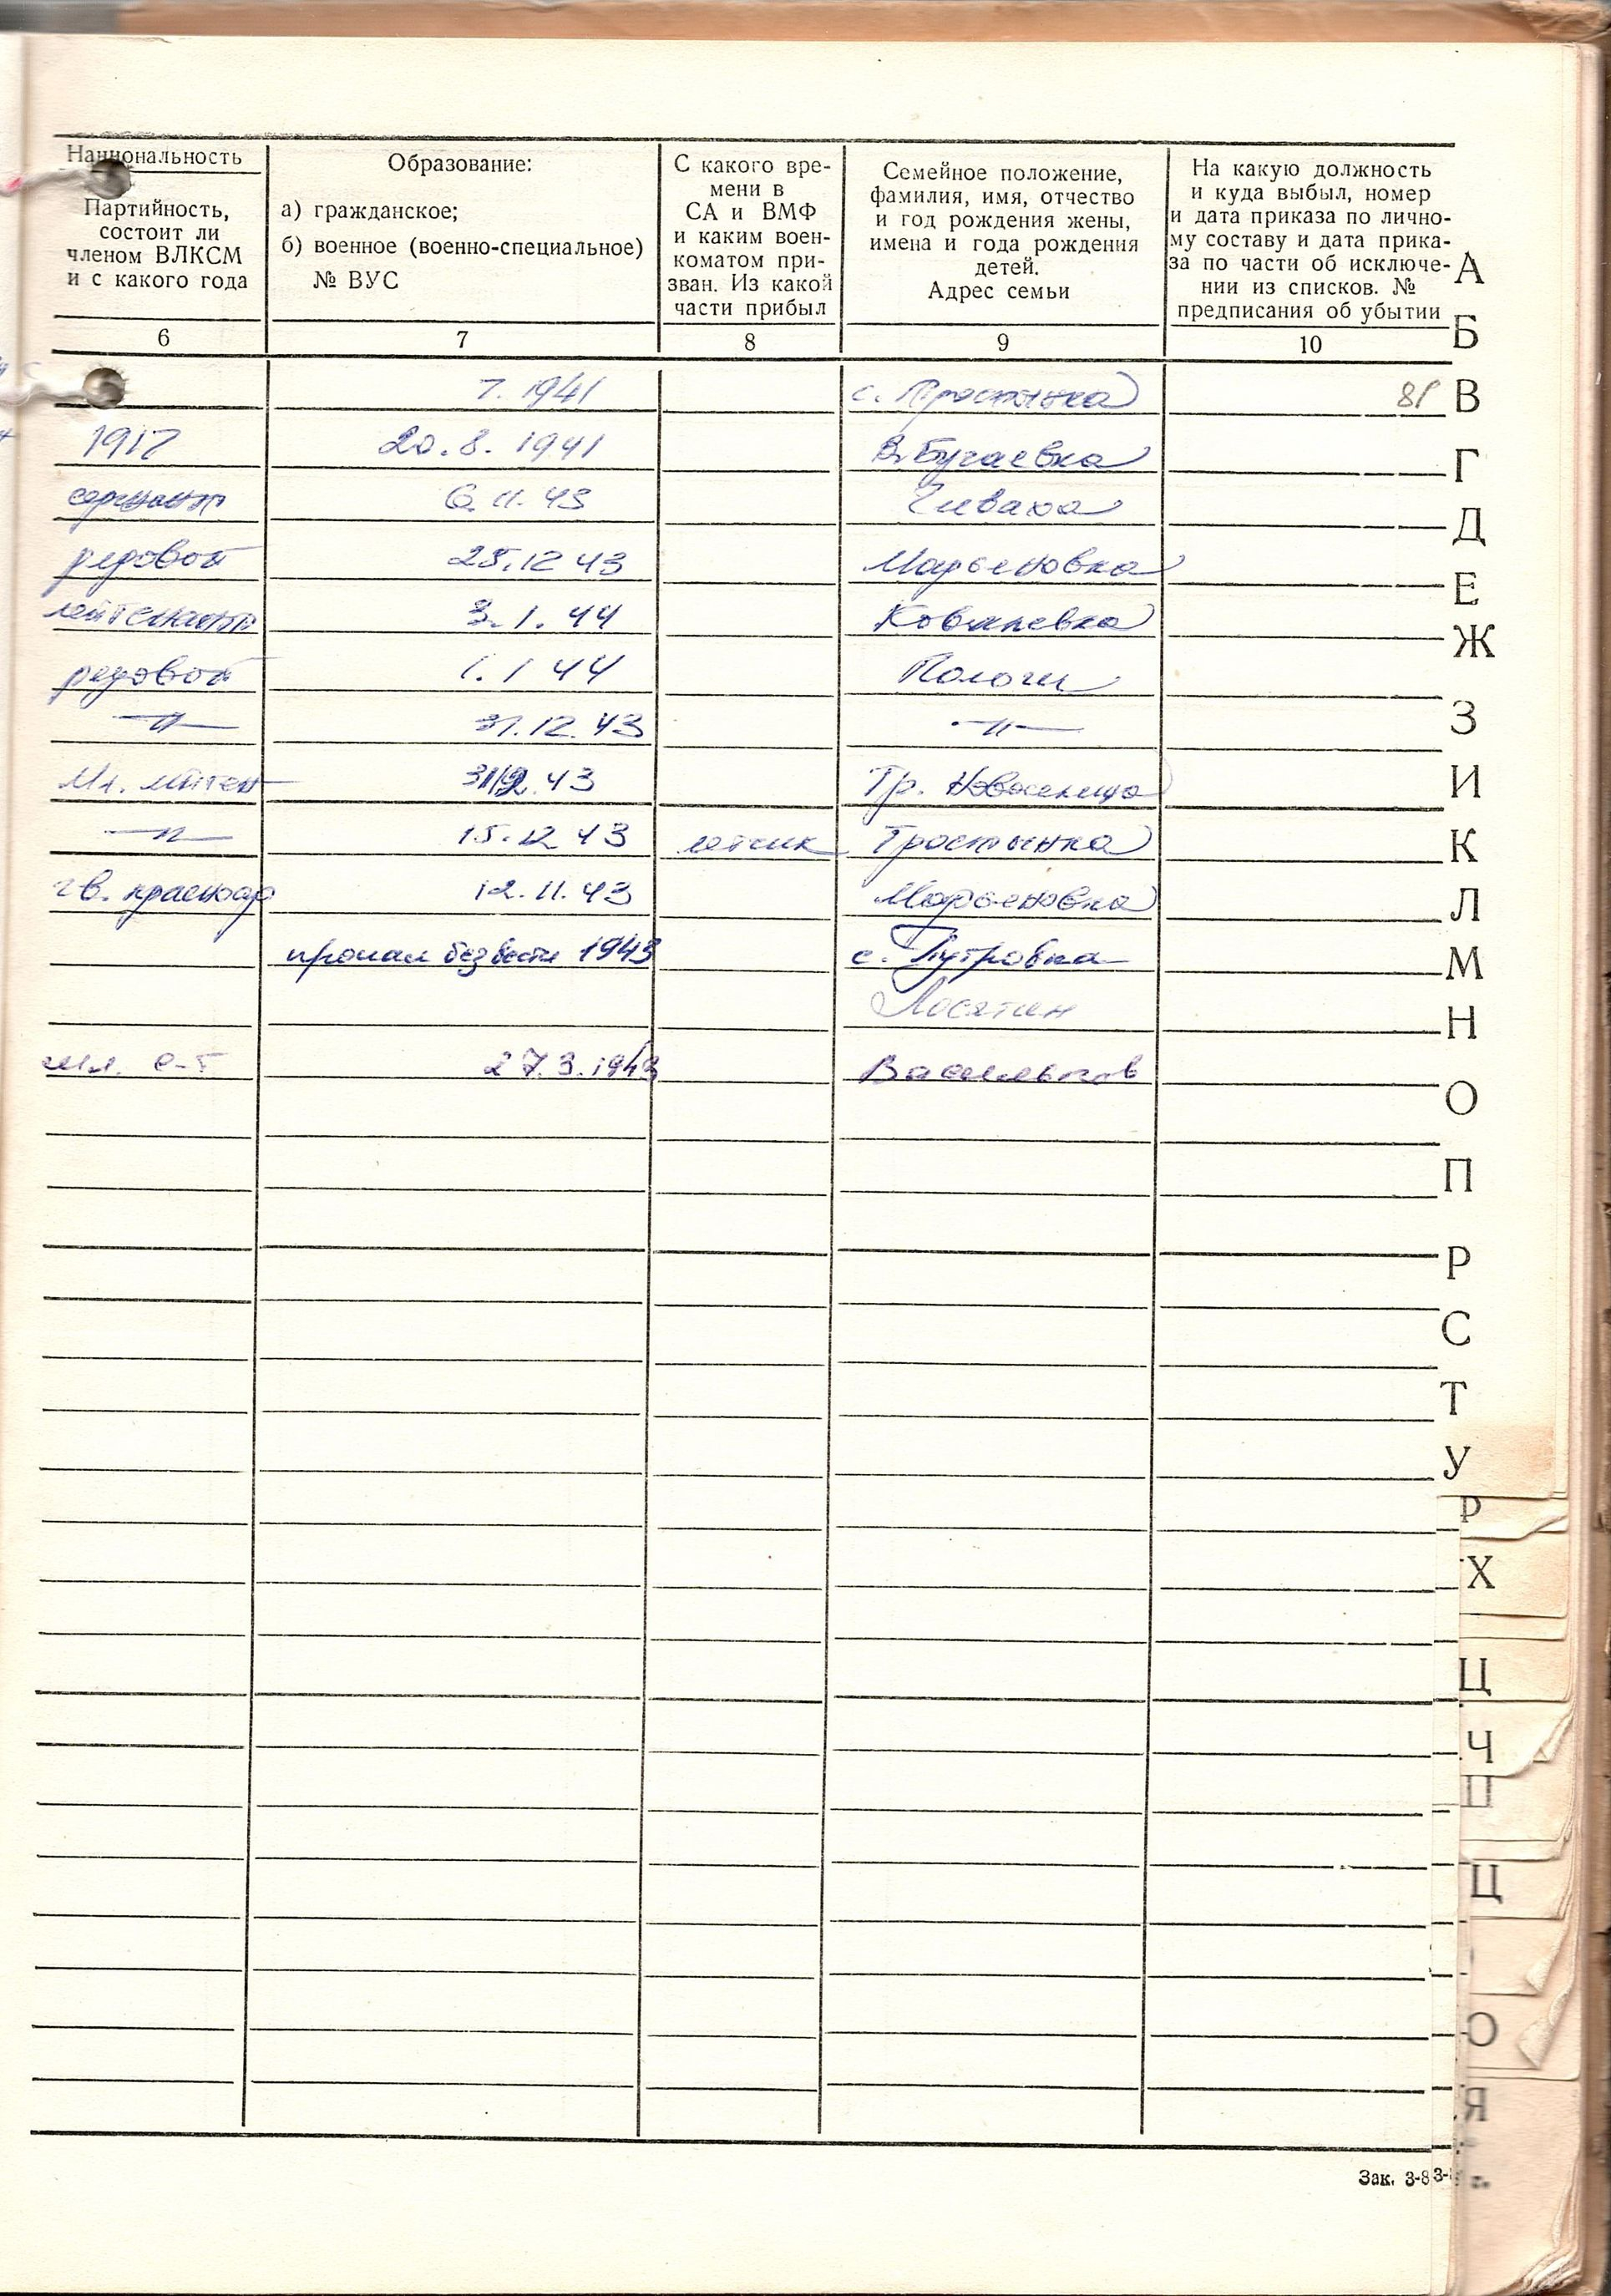 Национальность
Партийность,
состоит ли
членом ВЛКСМ
и с какого года
Образование:
а) гражданское;
б) военное (военно-специальное)
№ ВУС
С какого вре-
мени в
СА и ВМФ
и каким воен-
коматом при-
зван. Из какой
части прибыл
Семейное положение,
фамилия, имя, отчество
и год рождения жены,
имена и года рождения
детей.
Адрес семьи
На какую должность
и куда выбыл, номер
и дата приказа по лично-
му составу и дата прика-
за по части об исключе-
нии из списков. №
предписания об убытии
6 7 8 9 10
7. 1941 с. Тростынка 81
1917 20.8.1941 В Бугаевка
сержант 6.11.43
рядовой 25.12 43 Марьеновка
лейтенант 3.1.44 Ковалевка
рядовой 1.1 44 Пологи
—"— 31.12.43 —"—
Мл. лейтен 31.12.43 Гр. Новоселица
—"— 15.12 43 летчик Тростынка
гв. красноар 12.11.43 Марьеновка
пропал без вести 1943 с.
Лосятин
мл. с-т 27.3.1943 Васильков
А
Б
В
Г
Д
Е
Ж
З
И
К
Л
М
Н
О
П
Р
С
Т
У
Р
Х
Ц
Ч
Ц
Ю
Я
Зак. 3-83